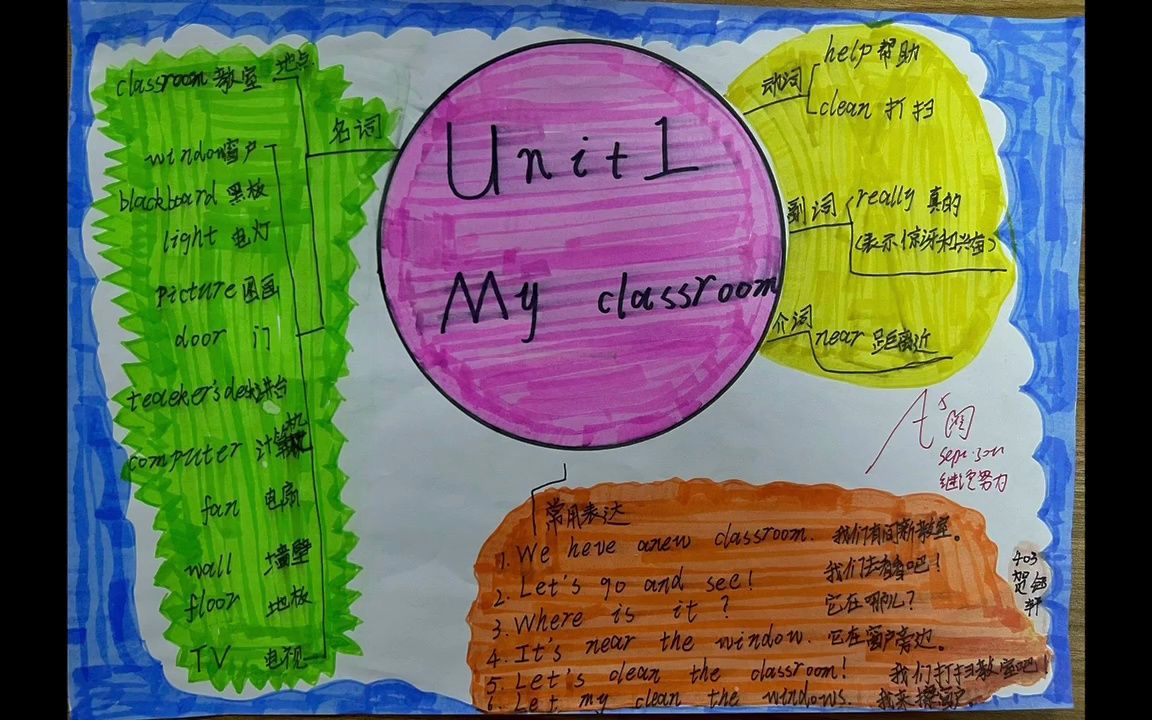 Unit 1
My classroom
名词
classroom 教室 地点
window 窗户
blackboard 黑板
light 电灯
picture 图画
door 门
teacker's desk 讲台
computer 计算机
fan 电扇
wall 墙壁
floor 地板
TV 电视
动词
help 帮助
clean 打扫
副词
really 真的
(表示惊讶和兴奋)
介词
near 距离近
A+ 阅
sept.30th
继续努力
常用表达
1. We heve anew classroom. 我们有间新教室。
2. Let's go and see! 我们去看看吧!
3. Where is it? 它在哪儿?
4. It's near the window. 它在窗户旁边。
5. Let's clean the classroom! 我们打扫教室吧!
6. Let my clean the windows. 我来擦窗户。
403
贺
轩